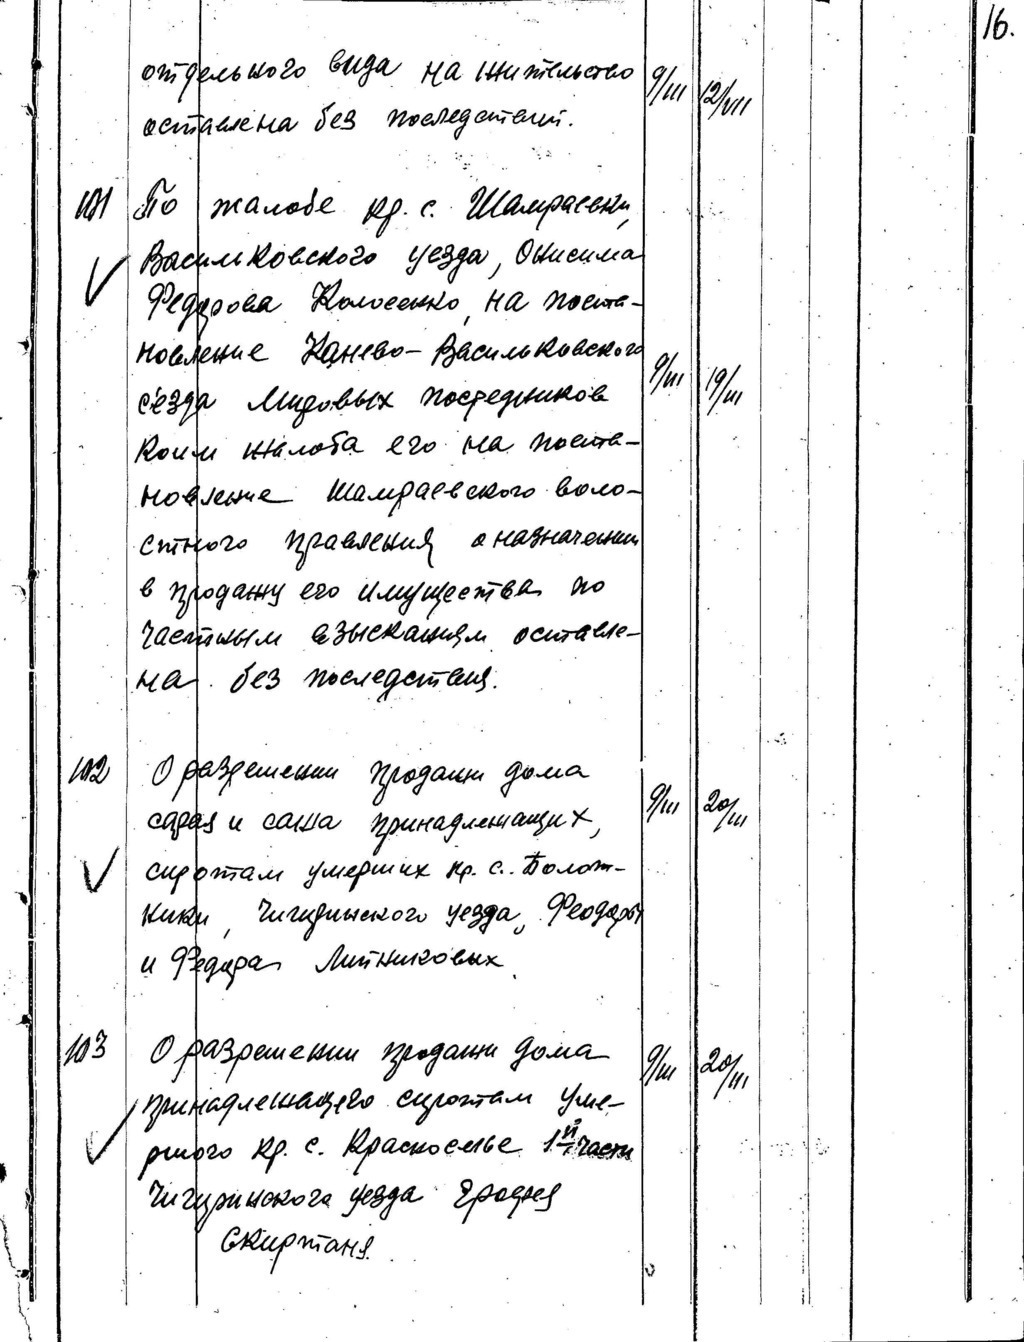 16.
отдельного вида на жительство 9/III 12/VII
оставлена без последствий.
101 По жалобе кр. с. Шамраевки,
Васильковского уезда, Онисима
Федорова Колосенко, на поста-
новление Канево-Васильковского
с'езда Мировых посредников 9/III 19/III
коим жалоба его на поста-
новление Шамраевского воло-
стного правления о назначении
в продажу его имущества по
частным взысканиям оставле-
на без последствия.
102 О разрешении продажи дома
сарая и сажа принадлежащих, 9/III 20/III
сиротам умерших кр. с. Полот-
ники, Чигиринского уезда, Феодоры
и Федора Литниковых
103 О разрешении продажи дома 9/III 20/III
принадлежащего сиротам уме-
ршого кр. с. Красноселье 1й части
Чигиринского уезда Ерофея
Скиртаня.